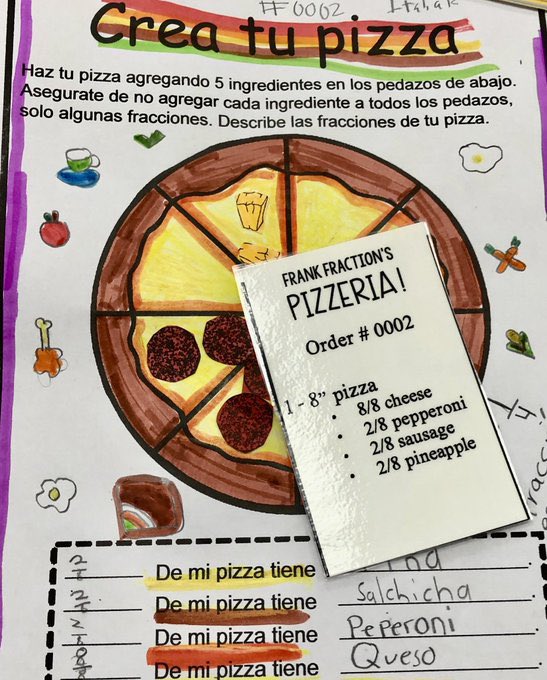 #0002 Itahak
Crea tu pizza
Haz tu pizza agregando 5 ingredientes en los pedazos de abajo.
Asegurate de no agregar cada ingrediente a todos los pedazos,
solo algunas fracciones. Describe las fracciones de tu pizza.
FRANK FRACTION'S
PIZZERIA!
Order # 0002
1 - 8" pizza
• 8/8 cheese
• 2/8 pepperoni
• 2/8 sausage
• 2/8 pineapple
De mi pizza tiene
De mi pizza tiene Salchicha.
De mi pizza tiene Peperoni.
De mi pizza tiene Queso